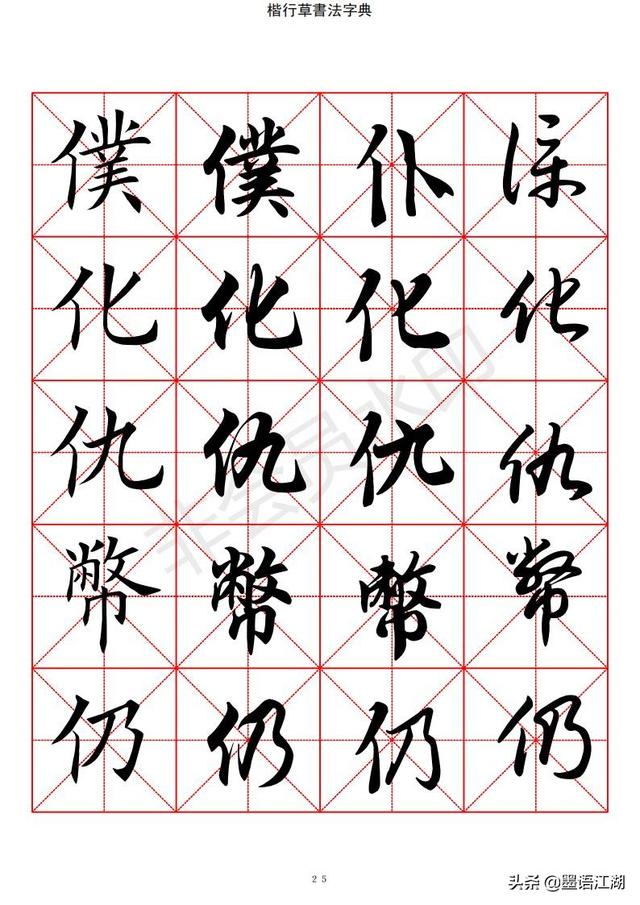 楷行草書法字典
僕 僕 仆 僕
化 化 化 化
仇 仇 仇 仇
幣 幣 幣 幣
仍 仍 仍 仍
非会员水印
25
头条 @墨语江湖